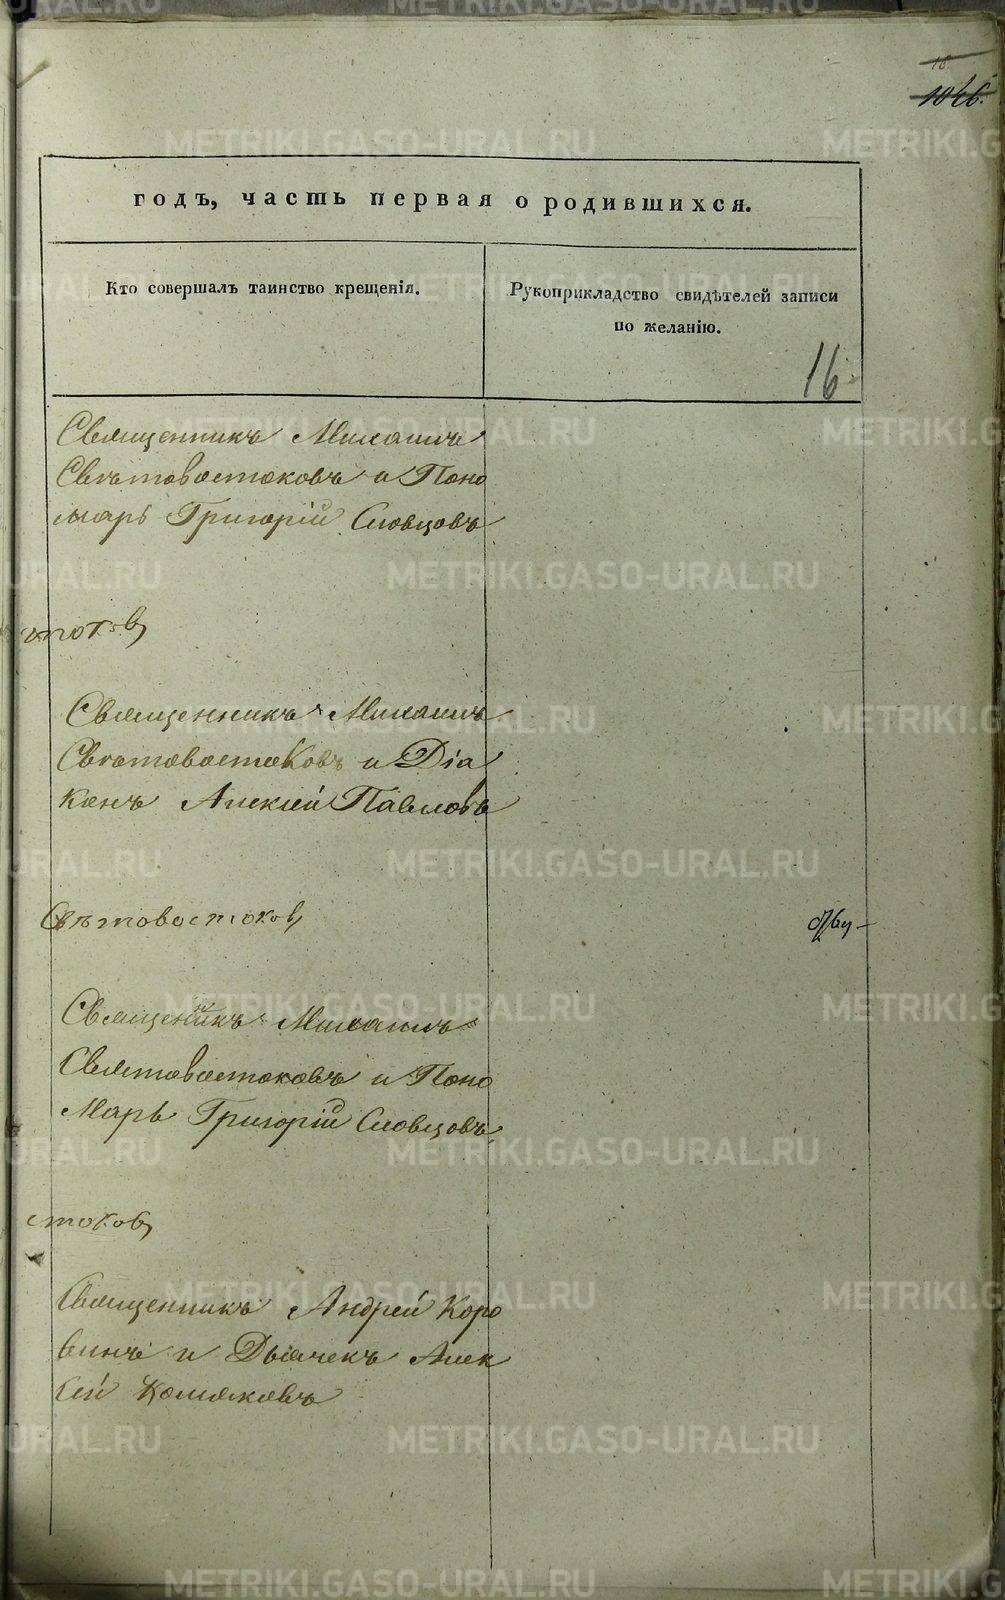 18
1046.
годъ, часть первая о родившихся.
Кто совершалъ таинство крещенія.
Рукоприкладство свидѣтелей записи
по желанію.
16
Священникъ Михаилъ
Свѣтовостоковъ и Поно
марь Григорій Словцовъ
Священникъ Михаилъ
Свѣтовостоковъ и Діа
конъ Алексѣй Павловъ
Свѣтовостоковъ
Священникъ Михаилъ
Святовостоковъ и Поно
марь Григорій Словцовъ
стоковъ
Священникъ Андрей Коро
винъ и Дьячекъ Алек
сѣй
METRIKI.GASO-URAL.RU